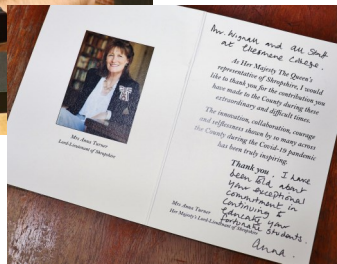 Mrs Anna Turner
Lord-Lieutenant of Shropshire
Mr. Wignall and all Staff
at Thomas College.
As Her Majesty The Queen's
representative of Shropshire, I would
like to thank you for the contribution you
have made to the County during these
extraordinary and difficult times.
The innovation, collaboration, courage
and selflessness shown by so many across
the County during the Covid-19 pandemic
has been truly inspiring.
Thank you. I have
been told about
your exceptional
commitment in
continuing to
educate your
fortunate students.
Mrs Anna Turner
Her Majesty's Lord-Lieutenant of Shropshire
Anna.